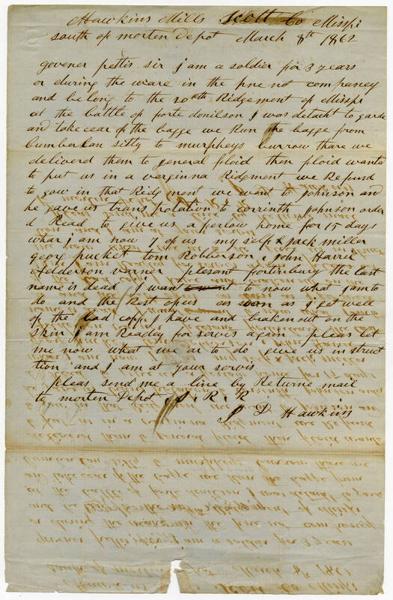 Hawkins Mills Scott Co Missi
south of morten Depot March 8th 1862
govener pettis sir i am a soldier for 3 years
or during the ware in the pne not comphaney
and be long to the 20th Ridgement of Missip
at the battle of forte donilson I was detacht to garde
and take cear of the bagge we Run the bagge from
Cumberlan sitty to murpheys burrow thare we
delivered them to general floid then floid wants
to put us in a verginna Ridgment we Refused
to gow in that Ridgment we want to Johnson and
he give us trans potation to corrinth Johnson order
d Read to give us a ferlow home for 15 days
whar I am now 7 of us my self & Jack miller
geor pucket tom Robberson & John Harris
Adderson verner plesant fortinbury the last
name is dead I want to now what I am to
do and the Rest of us as soon as I get well
of the bad coff I have and breaken out on the
skin I am Readey for servis again pleas let
me now what we ar to do give us in struct
tion and I am at your servis
pleas send me a line by Returne mail
to morten Depot S. R. R
J D Hawkins